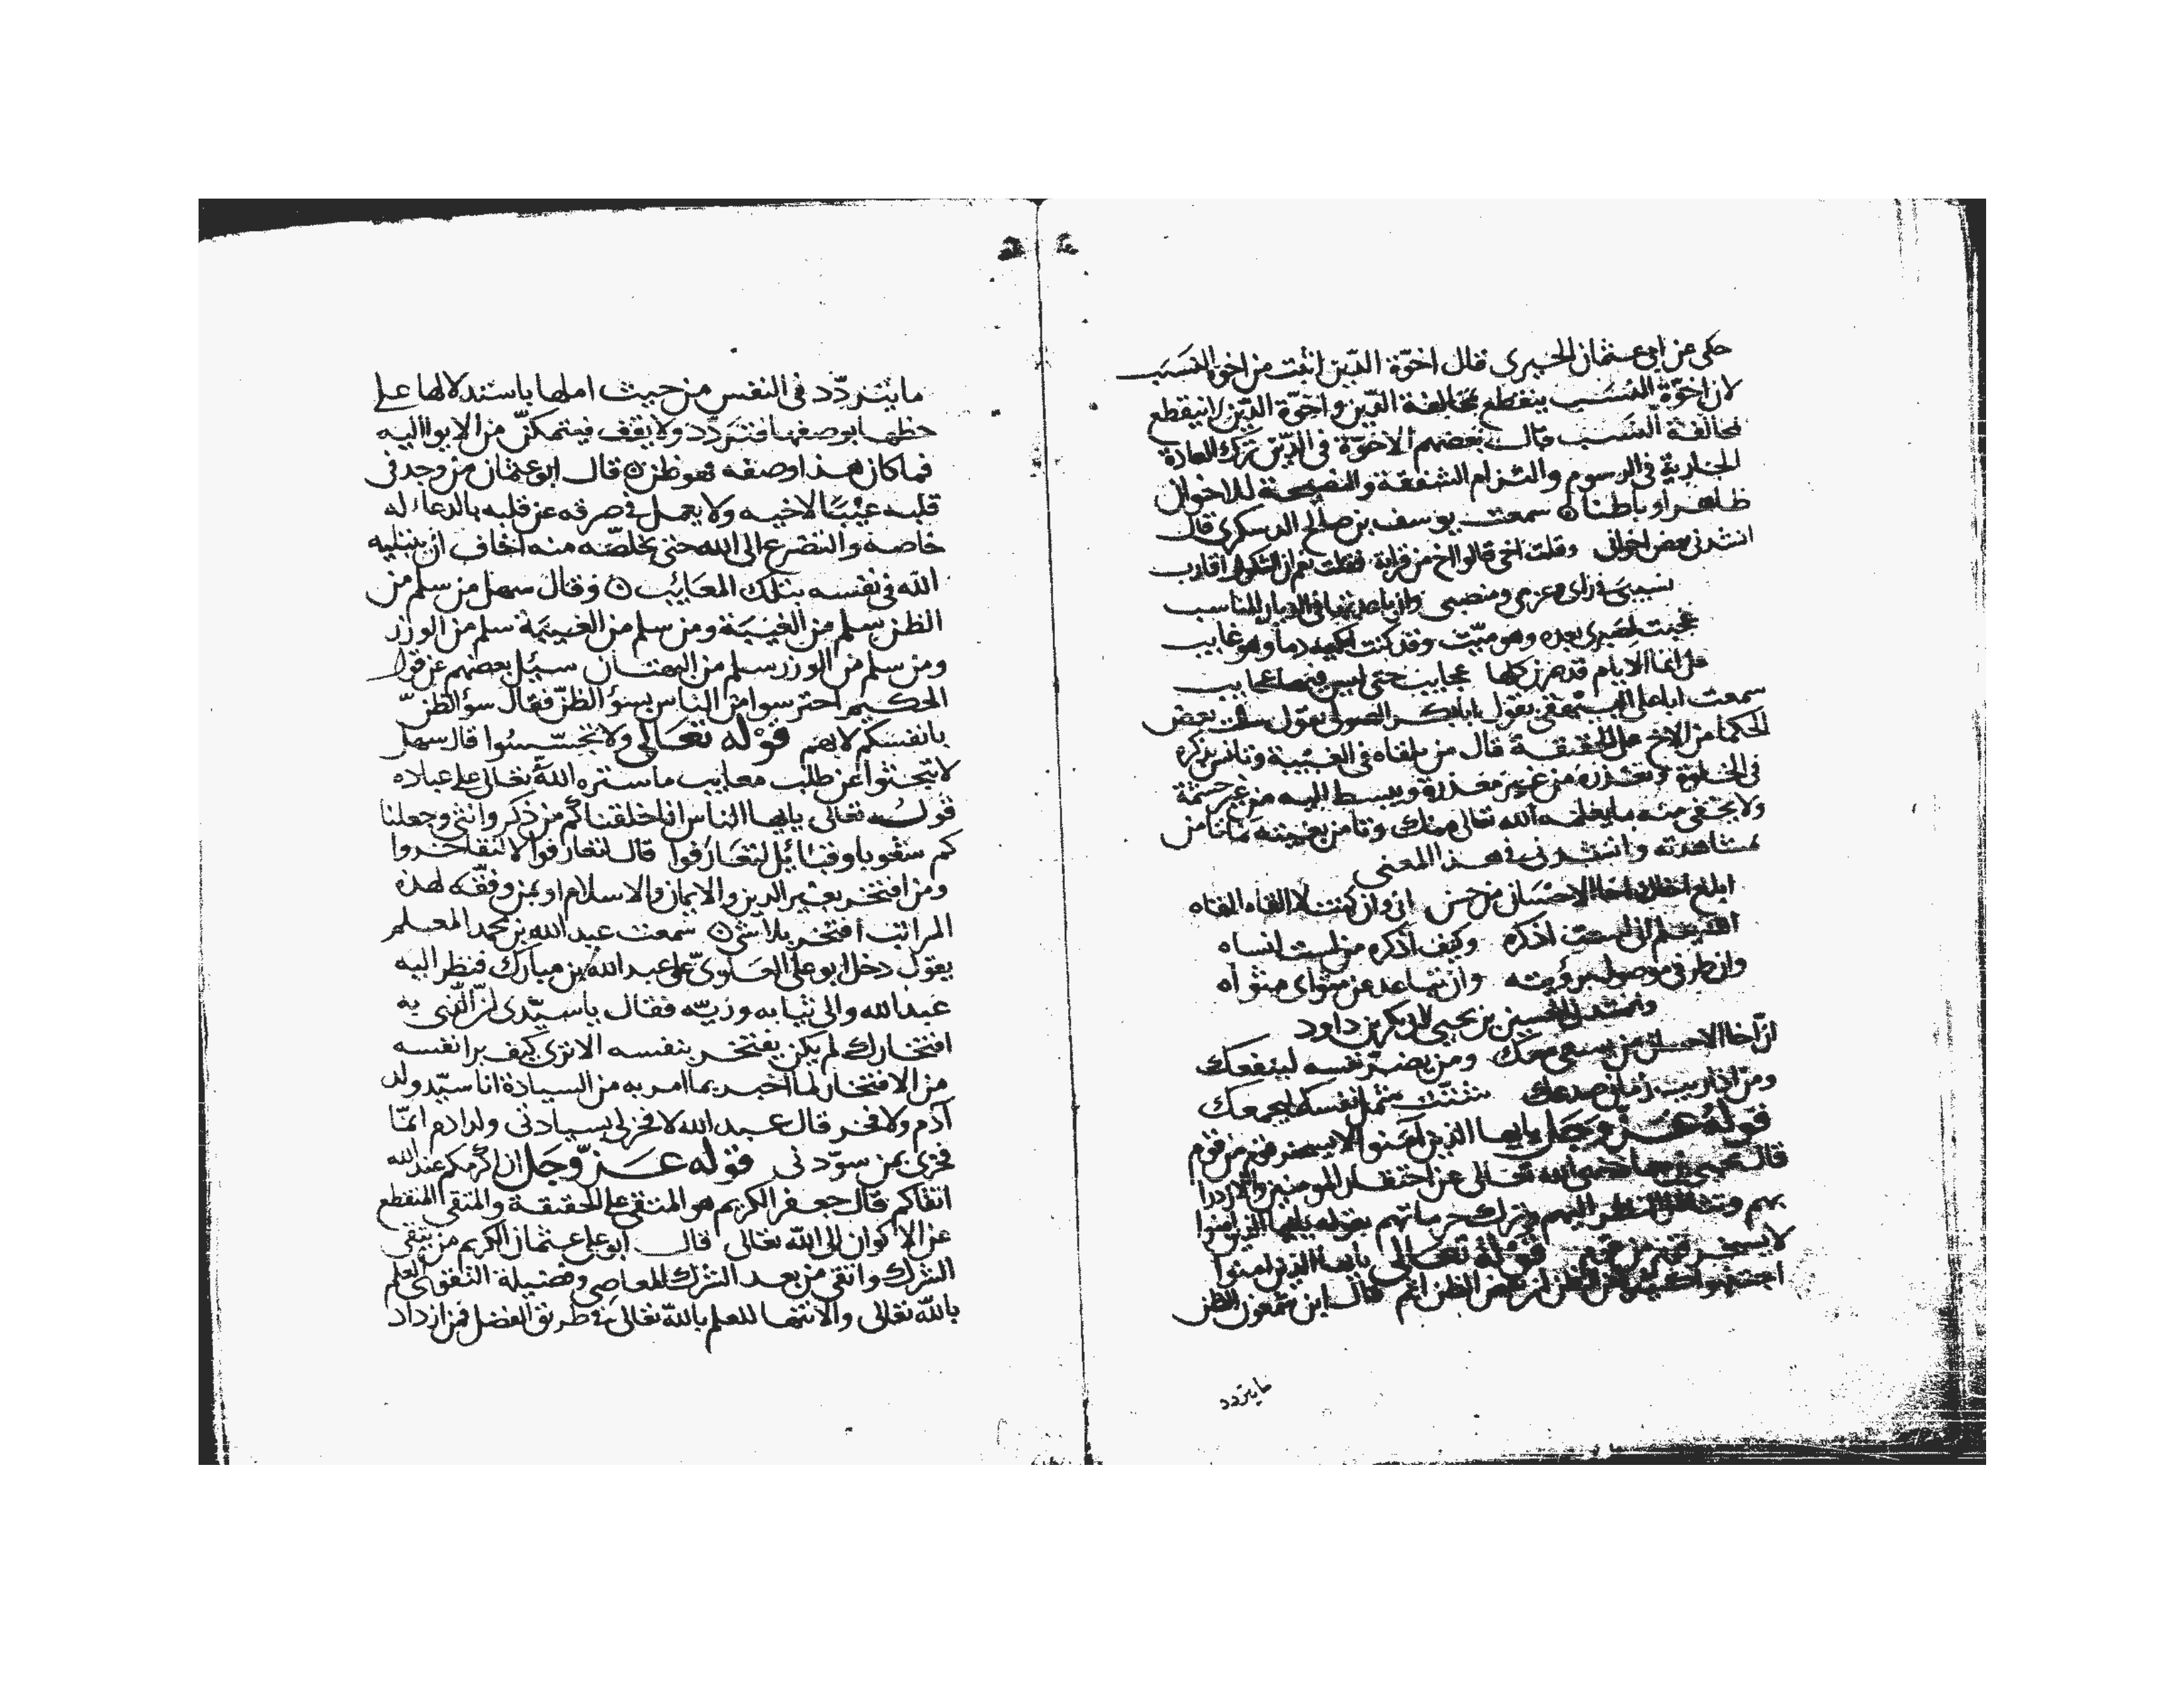 حكى عن ابي عثمان الحيري قال اخوّة الدّين اثبت من اخوة النسب
لان اخوّة النسب ينقطع بمخالفة الدّين واخوّة الدّين لا ينقطع
بمخالفة النسب قال بعضهم الاخوّة في الدّين ترك العادة
الجارية في الرسوم والتزام الشفقة والنصيحة للاخوان
ظاهرا وباطنا سمعت يوسف بن صالح الدسكري قال
انشدني بعض اخواني وقلت اخي قالوا اخ من قرابة فقلت نعم ان الشكول اقارب
نسيبي في رايي وعزمي ومنصبي وان باعدتنا في الديار المناسب
عجبت لصبري بعده وهو ميّت وقد كنت ابكيه دما وهو غايب
على انها الايام قد صرن كلها عجايب حتى ليس فيها عجايب
سمعت ابا علي البيهقي يقول ابا بكر الصولي يقول سالت بعض
الحكما من الاخ على الحقيقة قال من يلقاه في الغيبة وتانس بذكره
في الخلوة وتعذره من غير معذرة وينبسط اليه من غير حشمة
ولا يخفي منه ما يعلمه الله تعالى منك وتامن بغيبته ما تامن
بمشاهدته وانشدني في هذا المعنى
ابلغ اخاك اخا الاحسان من حسن اني وان كنت لا القاه القاه
الله يعلم اني لست اذكره وكيف اذكره من لست انساه
وان طرفي موصول برؤيته وان تباعد عن مثواي مثواه
وانشد الحسين بن يحيى لابي بكر بن داود
ان اخا الاحسان من يسعى معك ومن يضرّ نفسه لينفعك
ومن اذا ريب زمان صدعك شتّت شمل نفسه ليجمعك
قوله عز وجل يايها الذين آمنوا لا يسخر قوم من قوم
بهم والنظر اليهم وترك حرماتهم بقوله يايها الذين امنوا
لا يسخر قوم من قوم قوله تعالى يايها الذين امنوا
اجتنبوا كثيرا من الظن ان بعض الظن اثم قال ابن شمعون الظن
ما يتردد
ما يتردّد في النفس من حيث املها باستدلالها على
حظها بوصفها فتتردّد ولا يقف فيتمكنّ من الايواء اليه
فما كان هذا وصفه فهو ظن قال ابو عثمان من وجد في
قلبه عيبا لاخيه ولا يعمل في صرفه عن قلبه بالدعاء له
خاصة والتضرع الى الله حتى يخلصه منه اخاف ان يبتليه
الله في نفسه بتلك المعائب وقال سهل من سلم من
الظن سلم من الغيبة ومن سلم من الغيبة سلم من الوزر
ومن سلم من الوزر سلم من البهتان سئل بعضهم عن قول
الحكيم احترسوا من الناس بسؤ الظنّ فقال سؤ الظنّ
بانفسكم لا بهم قوله تعالى ولا تجسّسوا قال سهل
لا تبحثوا عن طلب معايب ما ستره الله تعالى على عباده
قوله تعالى يايها الناس انا خلقناكم من ذكر وانثى وجعلنا
كم شعوبا وقبائل لتعارفوا قال لتعارفوا لا لتفاخروا
ومن افتخر بغير الدين والايمان والاسلام او بمن وفقه لهذه
المراتب افتخر بلا شئ سمعت عبد الله بن محمد المعلم
يقول دخل ابو علي العلويّ على عبد الله بن مبارك فنظر اليه
عبد الله والى ثيابه وزيّه فقال يا سيّدي ان الذي به
افتخارك لم يكن يفتخر بنفسه الا ترى كيف برا نفسه
من الافتخار لما اخبر بما امر به من السيادة انا سيّد ولد
آدم ولا فخر قال عبد الله لا فخر لي بسيادتي ولد ادم انمّا
فخري بمن سوّدني قوله عز وجل ان اكرمكم عند الله
اتقاكم قال جعفر الكريم هو المتقي على الحقيقة والمتقي المنقطع
عن الاكوان الى الله تعالى قال ابو علي عثمان الكريم من يتقي
الشرك واتقى من بعد الشرك المعاصي وفضيلة التقوى العلم
بالله تعالى والانتها للعلم بالله تعالى في طريق الفضل فمن ازداد